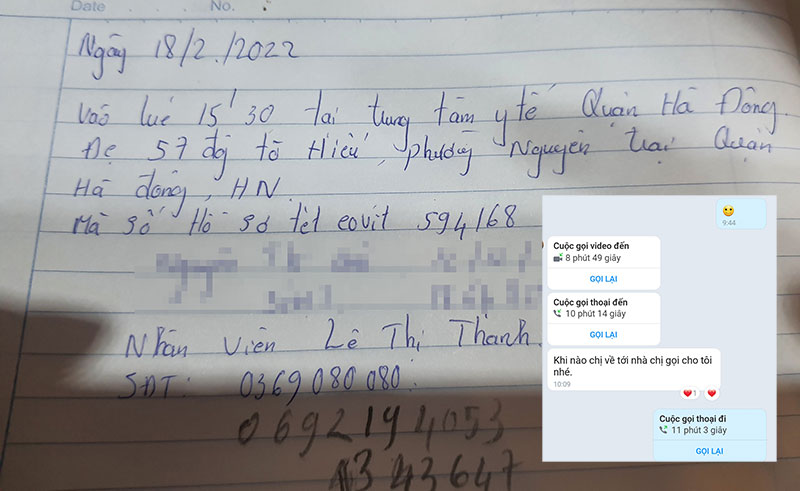 Date
No.
Ngày 18/2./2022
Vào lúc 15'30 tại trung tâm y tế Quận Hà Đông.
Đc 57 đg tô Hiếu, phường Nguyễn trại Quận
Hà đông, HN.
Mà số Hồ sơ tét covit 594168
Nhân viên Lê Thị Thanh.
SĐT: 0369080080.
0692194053
1343647
🙂
9:44
Cuộc gọi video đến
8 phút 49 giây
GỌI LẠI
Cuộc gọi thoại đến
10 phút 14 giây
GỌI LẠI
Khi nào chị về tới nhà chị gọi cho tôi
nhé.
10:09
❤1 ❤
Cuộc gọi thoại đi
11 phút 3 giây
GỌI LẠI